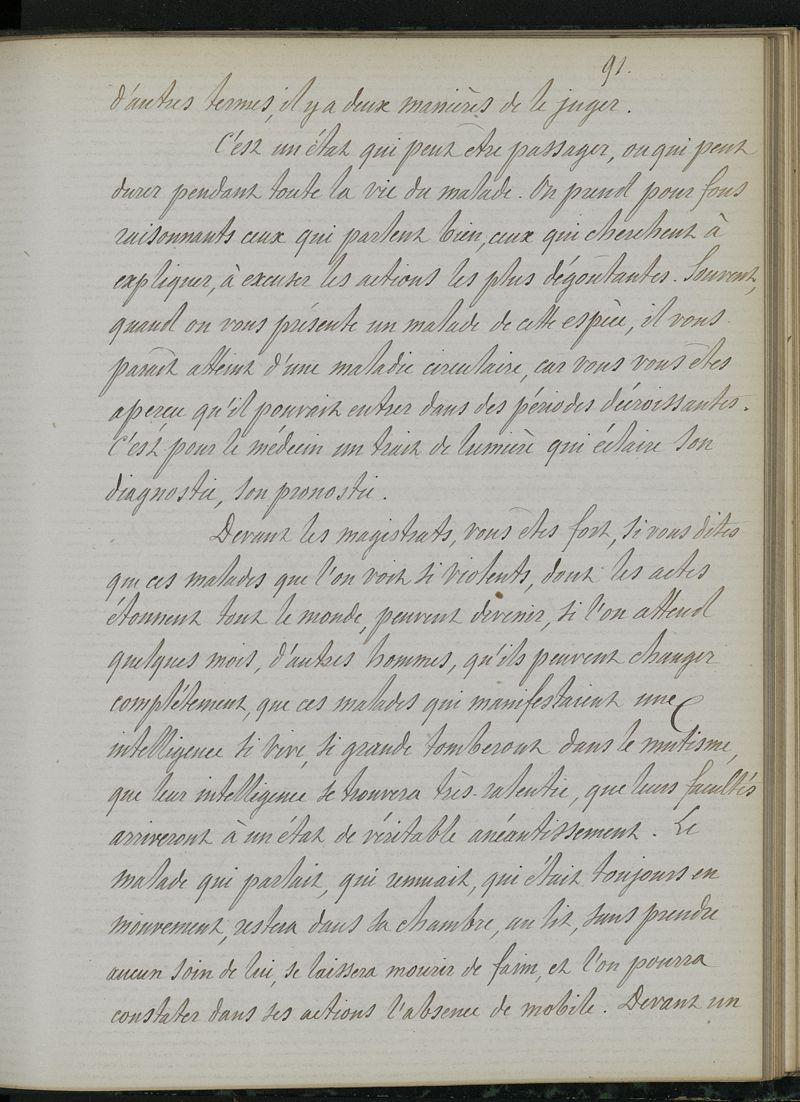 91.
d'autres termes, il y a deux manières de le juger.
C'est un état qui peut être passager, ou qui peut
durer pendant toute la vie du malade. On prend pour fous
raisonnants ceux qui parlent bien, ceux qui cherchent à
expliquer, à excuser les actions les plus dégoûtantes. Souvent,
quand on vous présente un malade de cette espèce, il vous
paraît atteint d'une maladie circulaire, car vous vous êtes
aperçu qu'il pouvait entrer dans des périodes décroissantes.
C'est pour le médecin un trait de lumière qui éclaire son
diagnostic, son pronostic.
Devant les magistrats, vous êtes fort, si vous dites
que ces malades que l'on voit si violents, dont les actes
étonnent tout le monde, peuvent devenir, si l'on attend
quelques mois, d'autres hommes, qu'ils peuvent changer
complétement, que ces malades qui manifestaient une
intelligence si vive, si grande tomberont dans le mutisme,
que leur intelligence se trouvera très-ralentie, que leurs facultés
arriveront à un état de véritable anéantissement. Le
malade qui parlait, qui remuait, qui était toujours en
mouvement, restera dans sa chambre, au lit, sans prendre
aucun soin de lui, se laissera mourir de faim, et l'on pourra
constater dans ses actions l'absence de mobile. Devant un